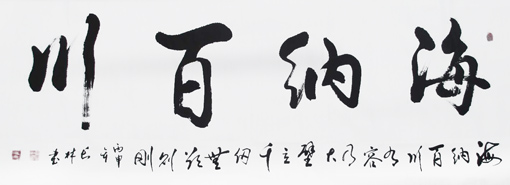 海纳百川
海纳百川有容乃大壁立千仞無欲則刚